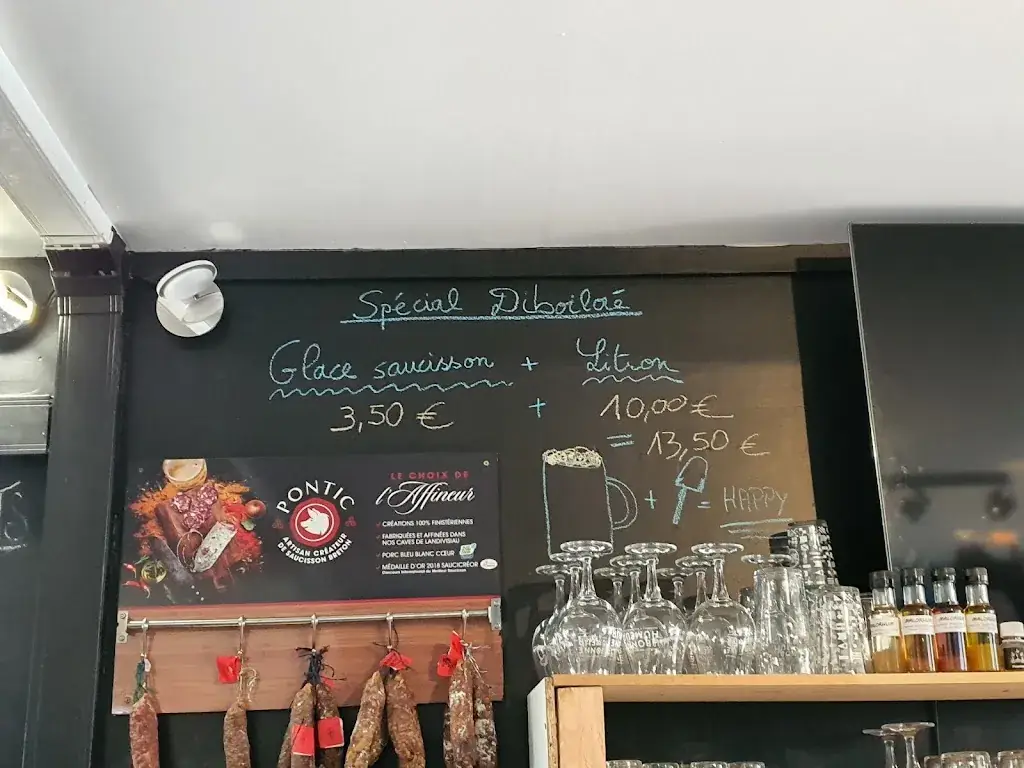 Spécial Diboilaé
Glace saucisson + Litron
3,50 € + 10,00 €
= 13,50 €
+ = HAPPY
PONTIC
ARTISAN CRÉATEUR
DE SAUCISSON BRETON
LE CHOIX DE
l'Affineur
CRÉATIONS 100% FINISTÉRIENNES
FABRIQUÉES ET AFFINÉES DANS
NOS CAVES DE LANDIVISIAU
PORC BLEU BLANC CŒUR
MÉDAILLE D'OR 2018 SAUCICRÉOR